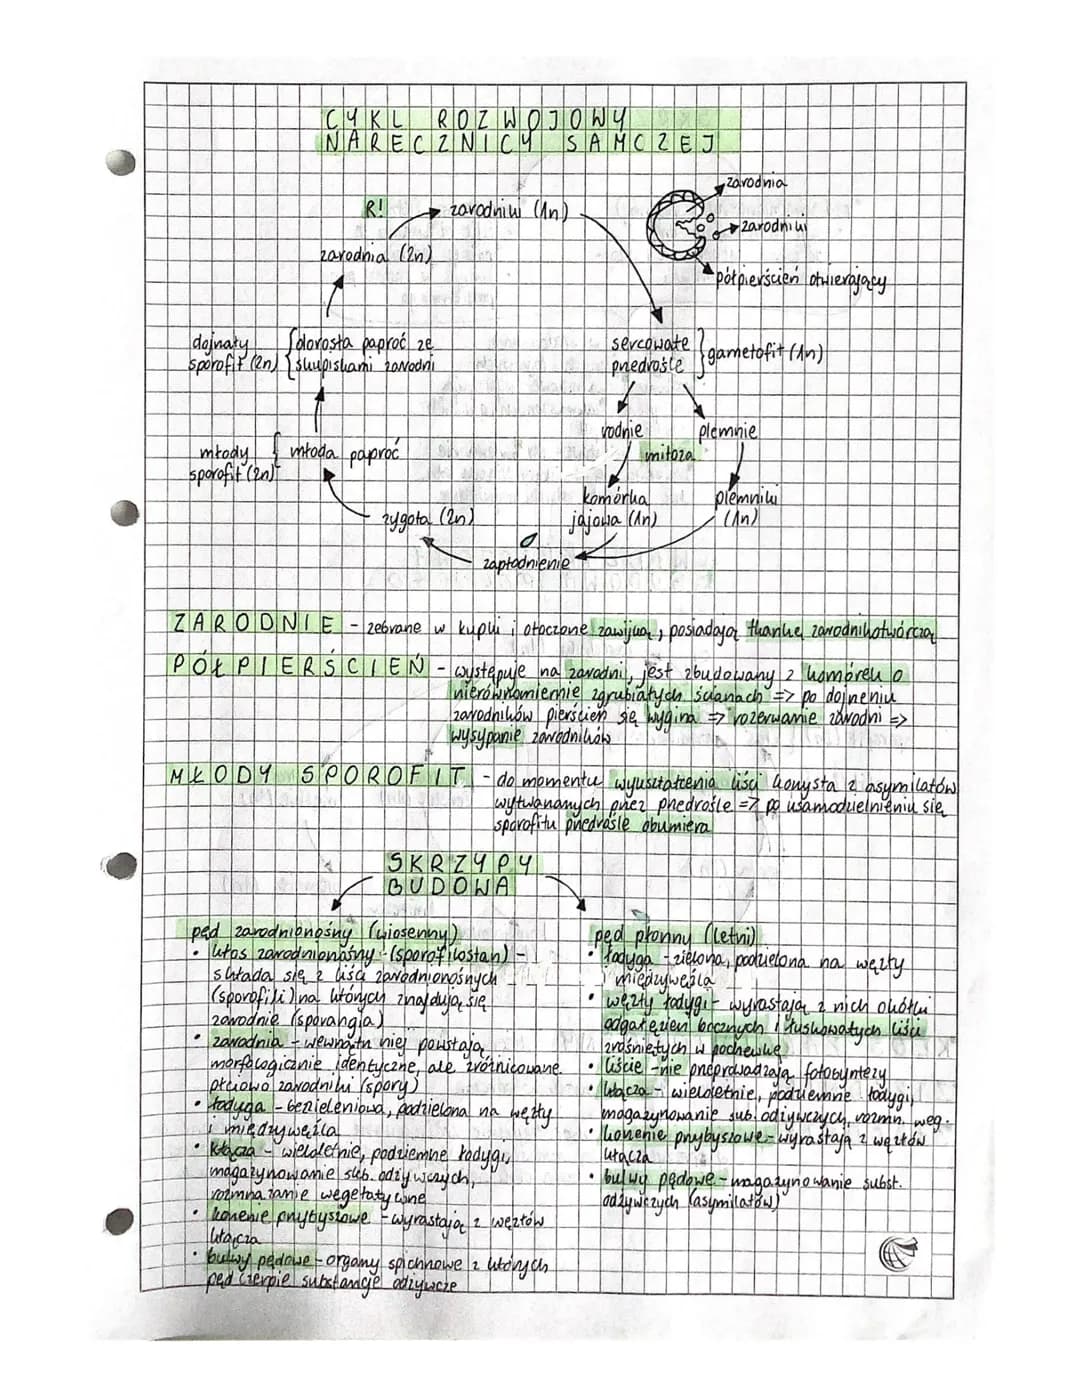 CYKL ROZWOJOWY
NARECZNICY SAMCZEJ
zarodnia
R!
zarodniki (1n)
zarodniki
zarodnia (2n)
półpierścień otwierający
dojrzały
sporofit (2n)
dorosła paproć ze
skupiskami zarodni
sercowate
przedrośle
gametofit (1n)
rodnie
plemnie
mitoza
młody
sporofit (2n)
młoda paproć
komórka
jajowa (1n)
plemniki
(1n)
zygota (2n)
zapłodnienie
ZARODNIE - zebrane w kupki i otoczone zawijką, posiadają tkankę zarodnikotwórczą
PÓŁPIERŚCIEŃ - występuje na zarodni, jest zbudowany z komórek o
nierównomiernie zgrubiałych ścianach => po dojrzeniu
zarodników pierścień się wygina => rozerwanie zarodni =>
wysypanie zarodników
MŁODY SPOROFIT - do momentu wykształcenia liści korzysta z asymilatów
wytwarzanych przez przedrośle => po usamodzielnieniu się
sporofitu przedrośle obumiera
SKRZYPY
BUDOWA
pęd zarodnionośny (wiosenny)
• kłos zarodnionośny - (sporofilostan) -
składa się z liści zarodnionośnych
(sporofili) na których znajdują się
zarodnie (sporangia)
• zarodnia - wewnątrz niej powstają
morfologicznie identyczne, ale zróżnicowane
płciowo zarodniki (spory)
• łodyga - bezzieleniowa, podzielona na węzły
i międzywęźla
• kłącza - wieloletnie, podziemne łodygi,
magazynowanie sub. odżywczych,
rozmnażanie wegetatywne
• korzenie przybyszowe - wyrastają z węzłów
kłącza
• bulwy pędowe - organy spichrzowe z których
pęd czerpie substancje odżywcze
pęd płonny (letni)
• łodyga - zielona, podzielona na węzły
i międzywęźla
• węzły łodygi - wyrastają z nich okółki
odgałęzień bocznych i łuskowatych liści
zrośniętych w pochewkę
• liście - nie przeprowadzają fotosyntezy
• kłącza - wieloletnie, podziemne łodygi,
magazynowanie sub. odżywczych, rozmn. weg.
• korzenie przybyszowe - wyrastają z węzłów
kłącza
• bulwy pędowe - magazynowanie subst.
odżywczych (asymilatów)